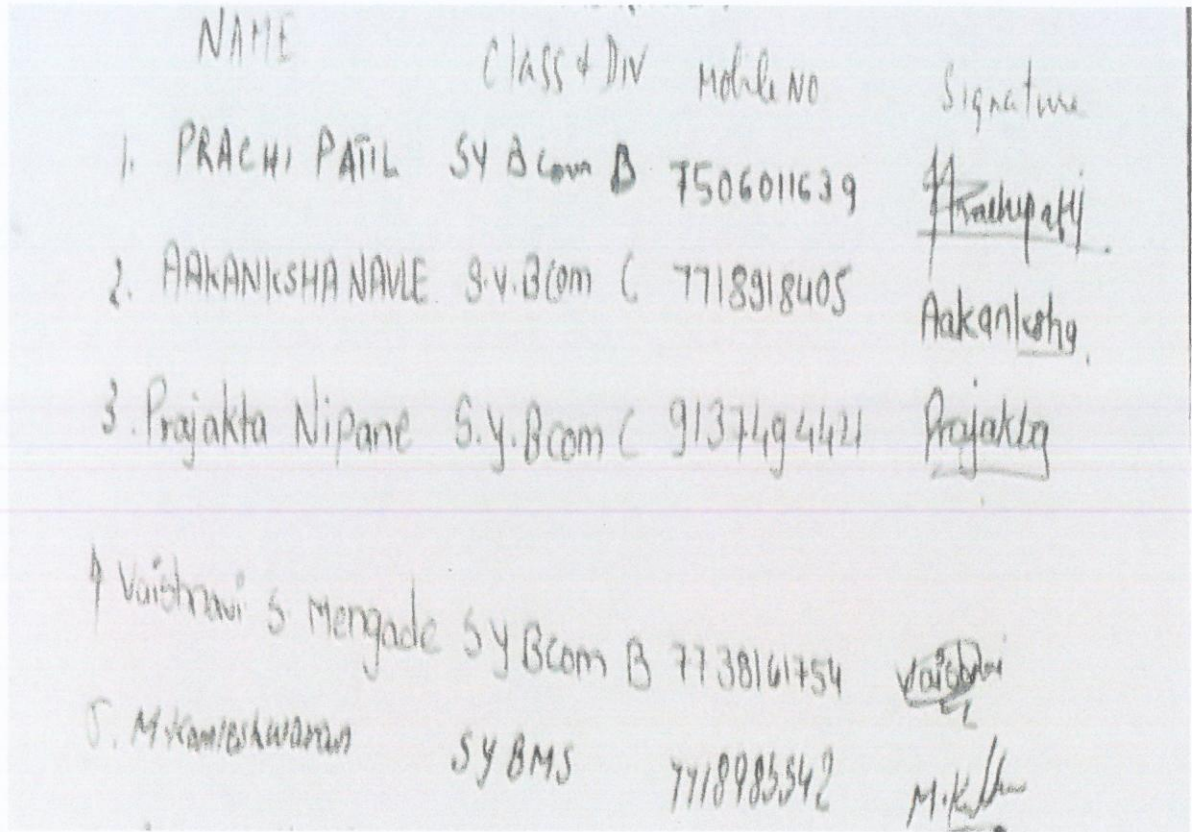 NAME Class & Div Mobile No Signature
1. PRACHI PATIL SY BCom B 7506011639 Prachipatil
2. AAKANKSHA NAVLE S.Y.BCom C 7718918405 Aakanksha
3. Prajakta Nipane S.Y.Bcom C 9137494421 Prajakta
4 Vaishnavi S. Mengade SY BCom B 7738161754 Vaishnavi
5. M.Kamleshwaran SY BMS 7718985542